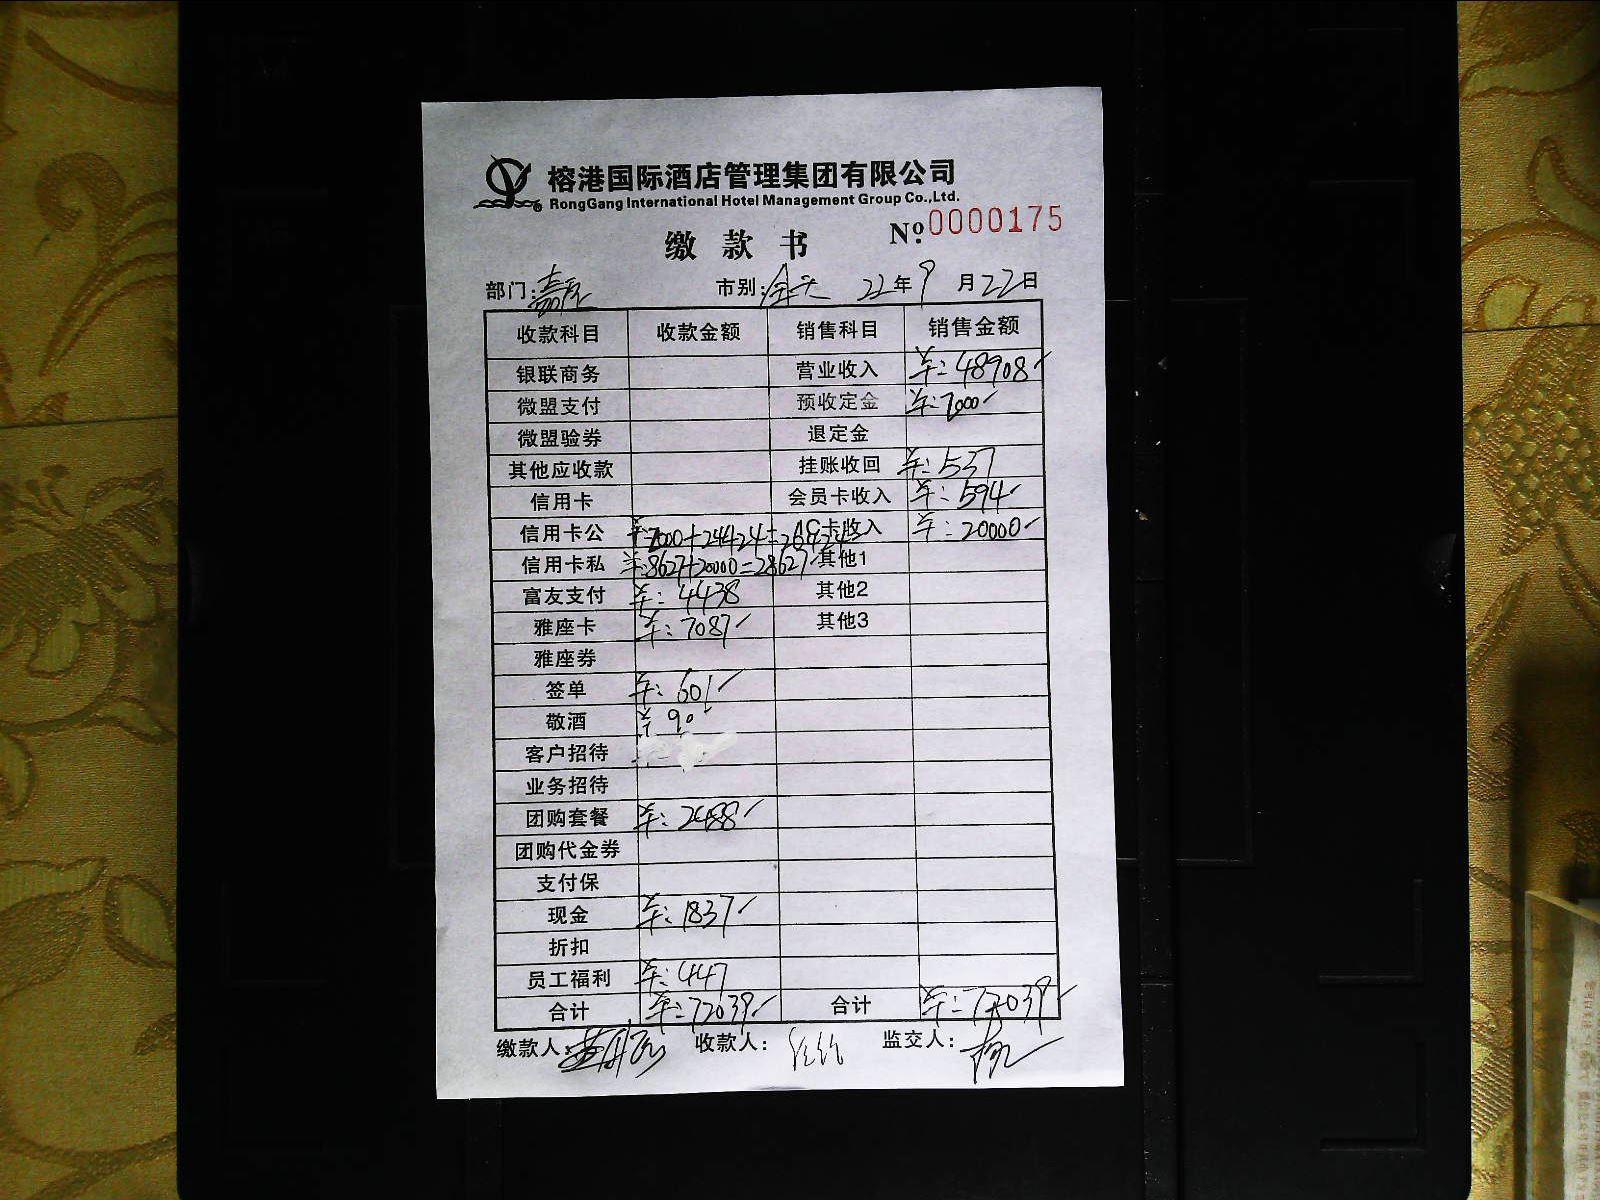 榕港国际酒店管理集团有限公司
RongGang International Hotel Management Group Co.,Ltd.
缴款书 №0000175
部门: 市别:全天 22年9月22日
收款科目 收款金额 销售科目 销售金额
银联商务 营业收入 ¥:48908
微盟支付 预收定金 ¥:2000
微盟验券 退定金
其他应收款 挂账收回 ¥:537
信用卡 会员卡收入 ¥:594
信用卡公 ¥:2000+24424=26424 卡收入 ¥:20000
信用卡私 ¥:8627+20000=28627 其他1
富友支付 ¥:4438 其他2
雅座卡 ¥:7087 其他3
雅座券
签单 ¥:601
敬酒 ¥:90
客户招待
业务招待
团购套餐 ¥:2488
团购代金券
支付保
现金 ¥:1837
折扣
员工福利 ¥:447
合计 ¥:72039 合计 ¥:72039
缴款人: 收款人: 监交人: